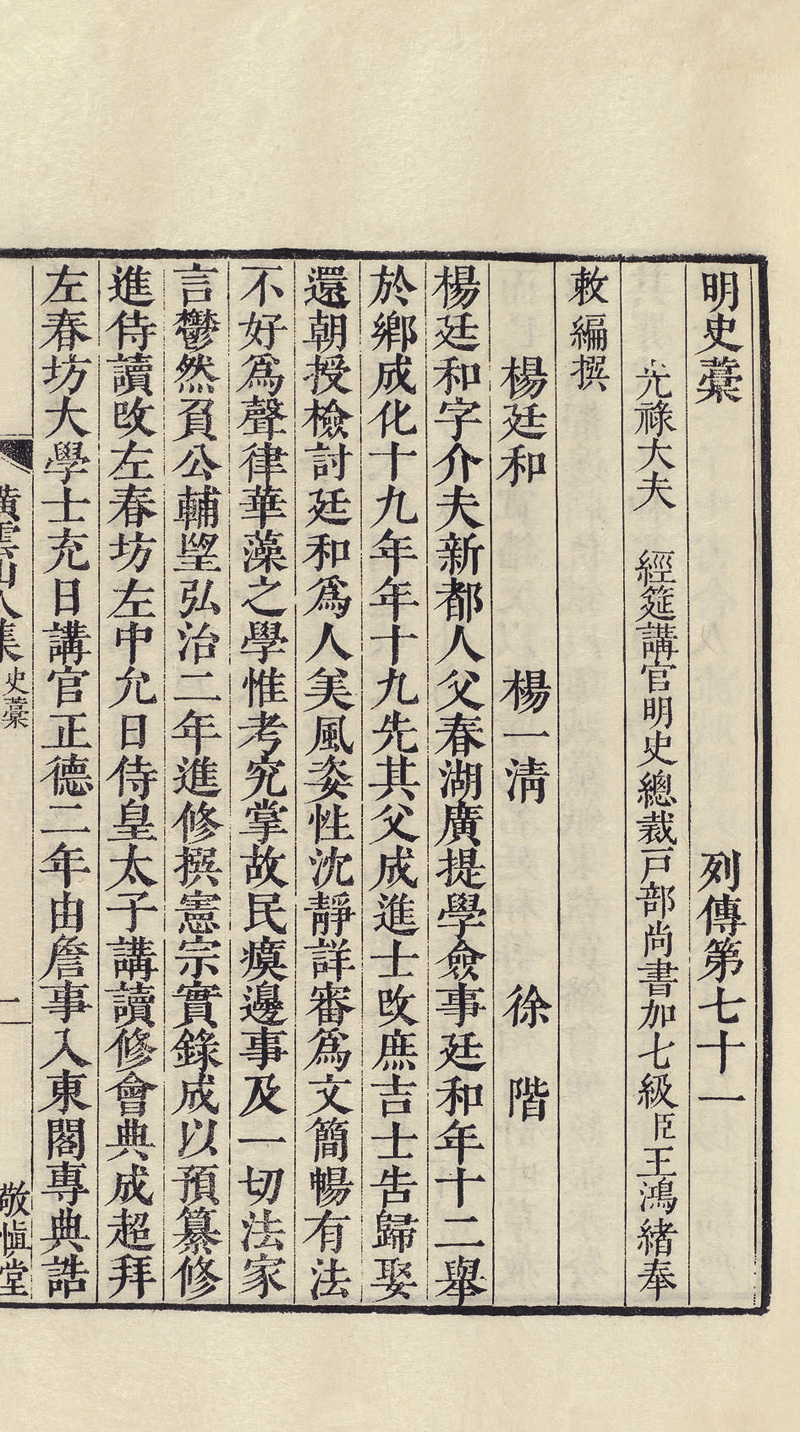 明史藁　列傳第七十一
光祿大夫　經筵講官明史總裁戶部尚書加七級臣王鴻緒奉
敕編撰
楊廷和　楊一淸　徐階
楊廷和字介夫新都人父春湖廣提學僉事廷和年十二舉
於鄉成化十九年年十九先其父成進士改庶吉士告歸娶
還朝授檢討廷和爲人美風姿性沈靜詳審爲文簡暢有法
不好爲聲律華藻之學惟考究掌故民瘼邊事及一切法家
言鬱然負公輔朢弘治二年進修撰憲宗實錄成以預纂修
進侍讀改左春坊左中允日侍皇太子講讀修會典成超拜
左春坊大學士充日講官正德二年由詹事入東閣專典誥
橫雲山人集　史藁　一　敬愼堂